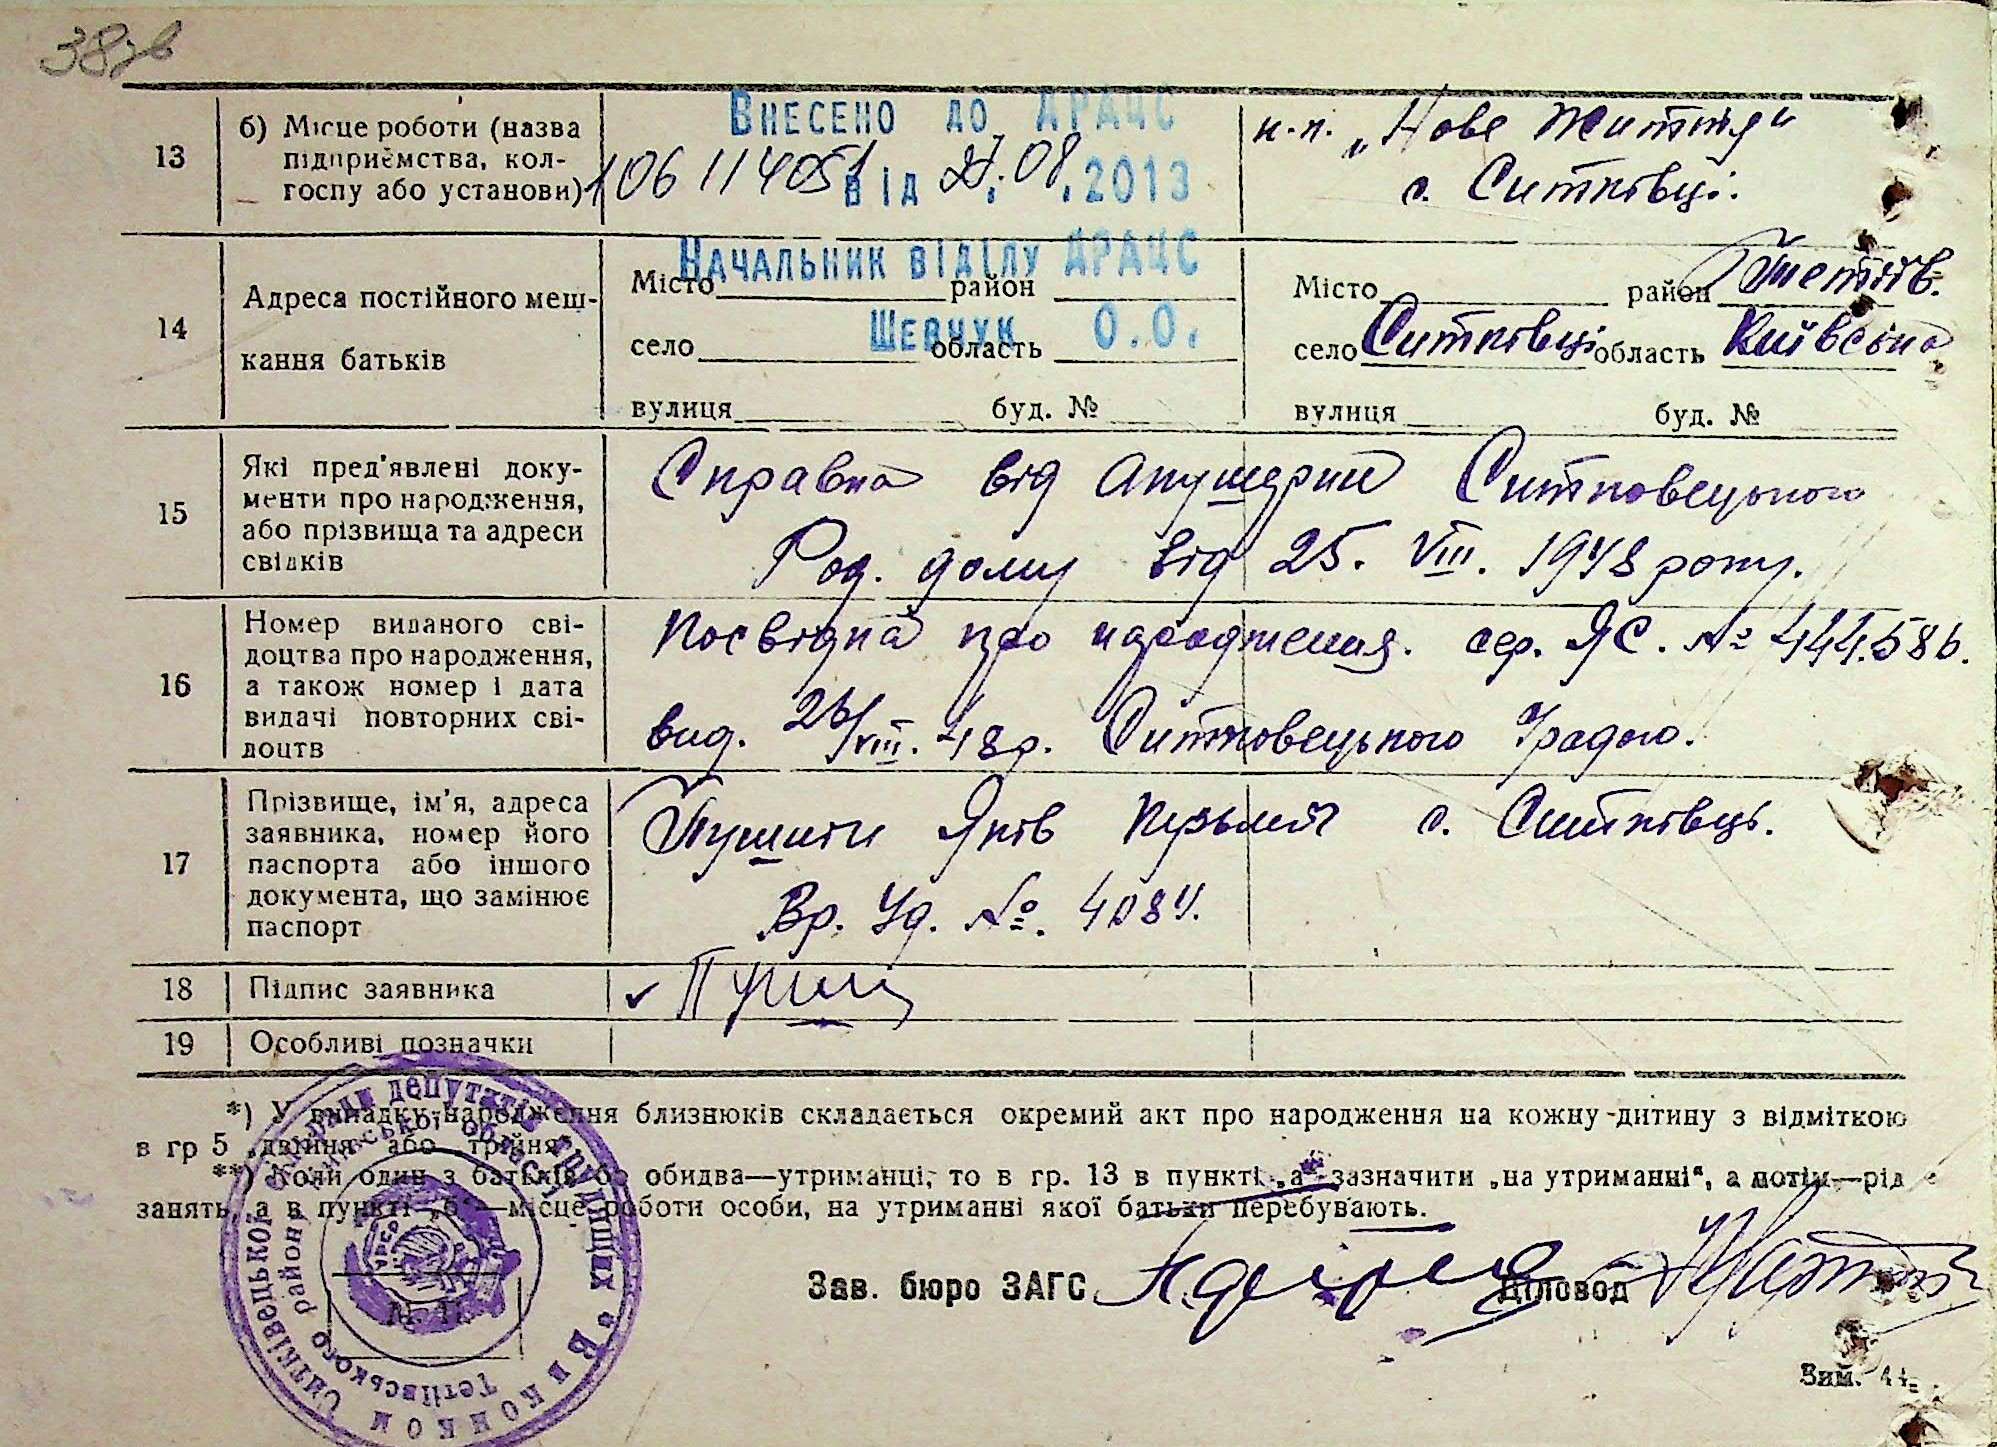 38зв
13
б) Місце роботи (назва
підприємства, кол-
госпу або установи)
Внесено до ДРАЦС
10611405 від 27.08.2013
к-п. „Нове Життя"
с. Ситківці.
Начальник відділу ДРАЦС
Шевчук О.О.
14
Адреса постійного меш-
кання батьків
Місто район
село область
вулиця буд. №
Місто район Тетіїв.
село Ситківці область Київська
вулиця буд. №
15
Які пред'явлені доку-
менти про народження,
або прізвища та адреси
свідків
Справка від акушерки Ситковецького
Род. дому від 25. VIII. 1948 року.
16
Номер виданого сві-
доцтва про народження,
а також номер і дата
видачі повторних сві-
доцтв
Посвідка про народження. сер. ЯС. №
вид. 26/VIII. 48р. Ситковецького
17
Прізвище, ім'я, адреса
заявника, номер його
паспорта або іншого
документа, що замінює
паспорт
Яків с. Ситківць.
Вр. Уд. №. 4084.
18
Підпис заявника
19
Особливі позначки
*) У випадку народження близнюків складається окремий акт про народження на кожну дитину з відміткою
в гр 5 „двійня" або „трійня"
**) Коли один з батьків бо обидва—утриманці, то в гр. 13 в пункті „а" зазначити „на утриманні", а потім—рід
занять, а в пункті „б"—місце роботи особи, на утриманні якої батьки перебувають.
Зав. бюро ЗАГС
Діловод
Виконком Ситківецької сільради депутатів трудящих
Тетіївського району Київської області
Зим. 44